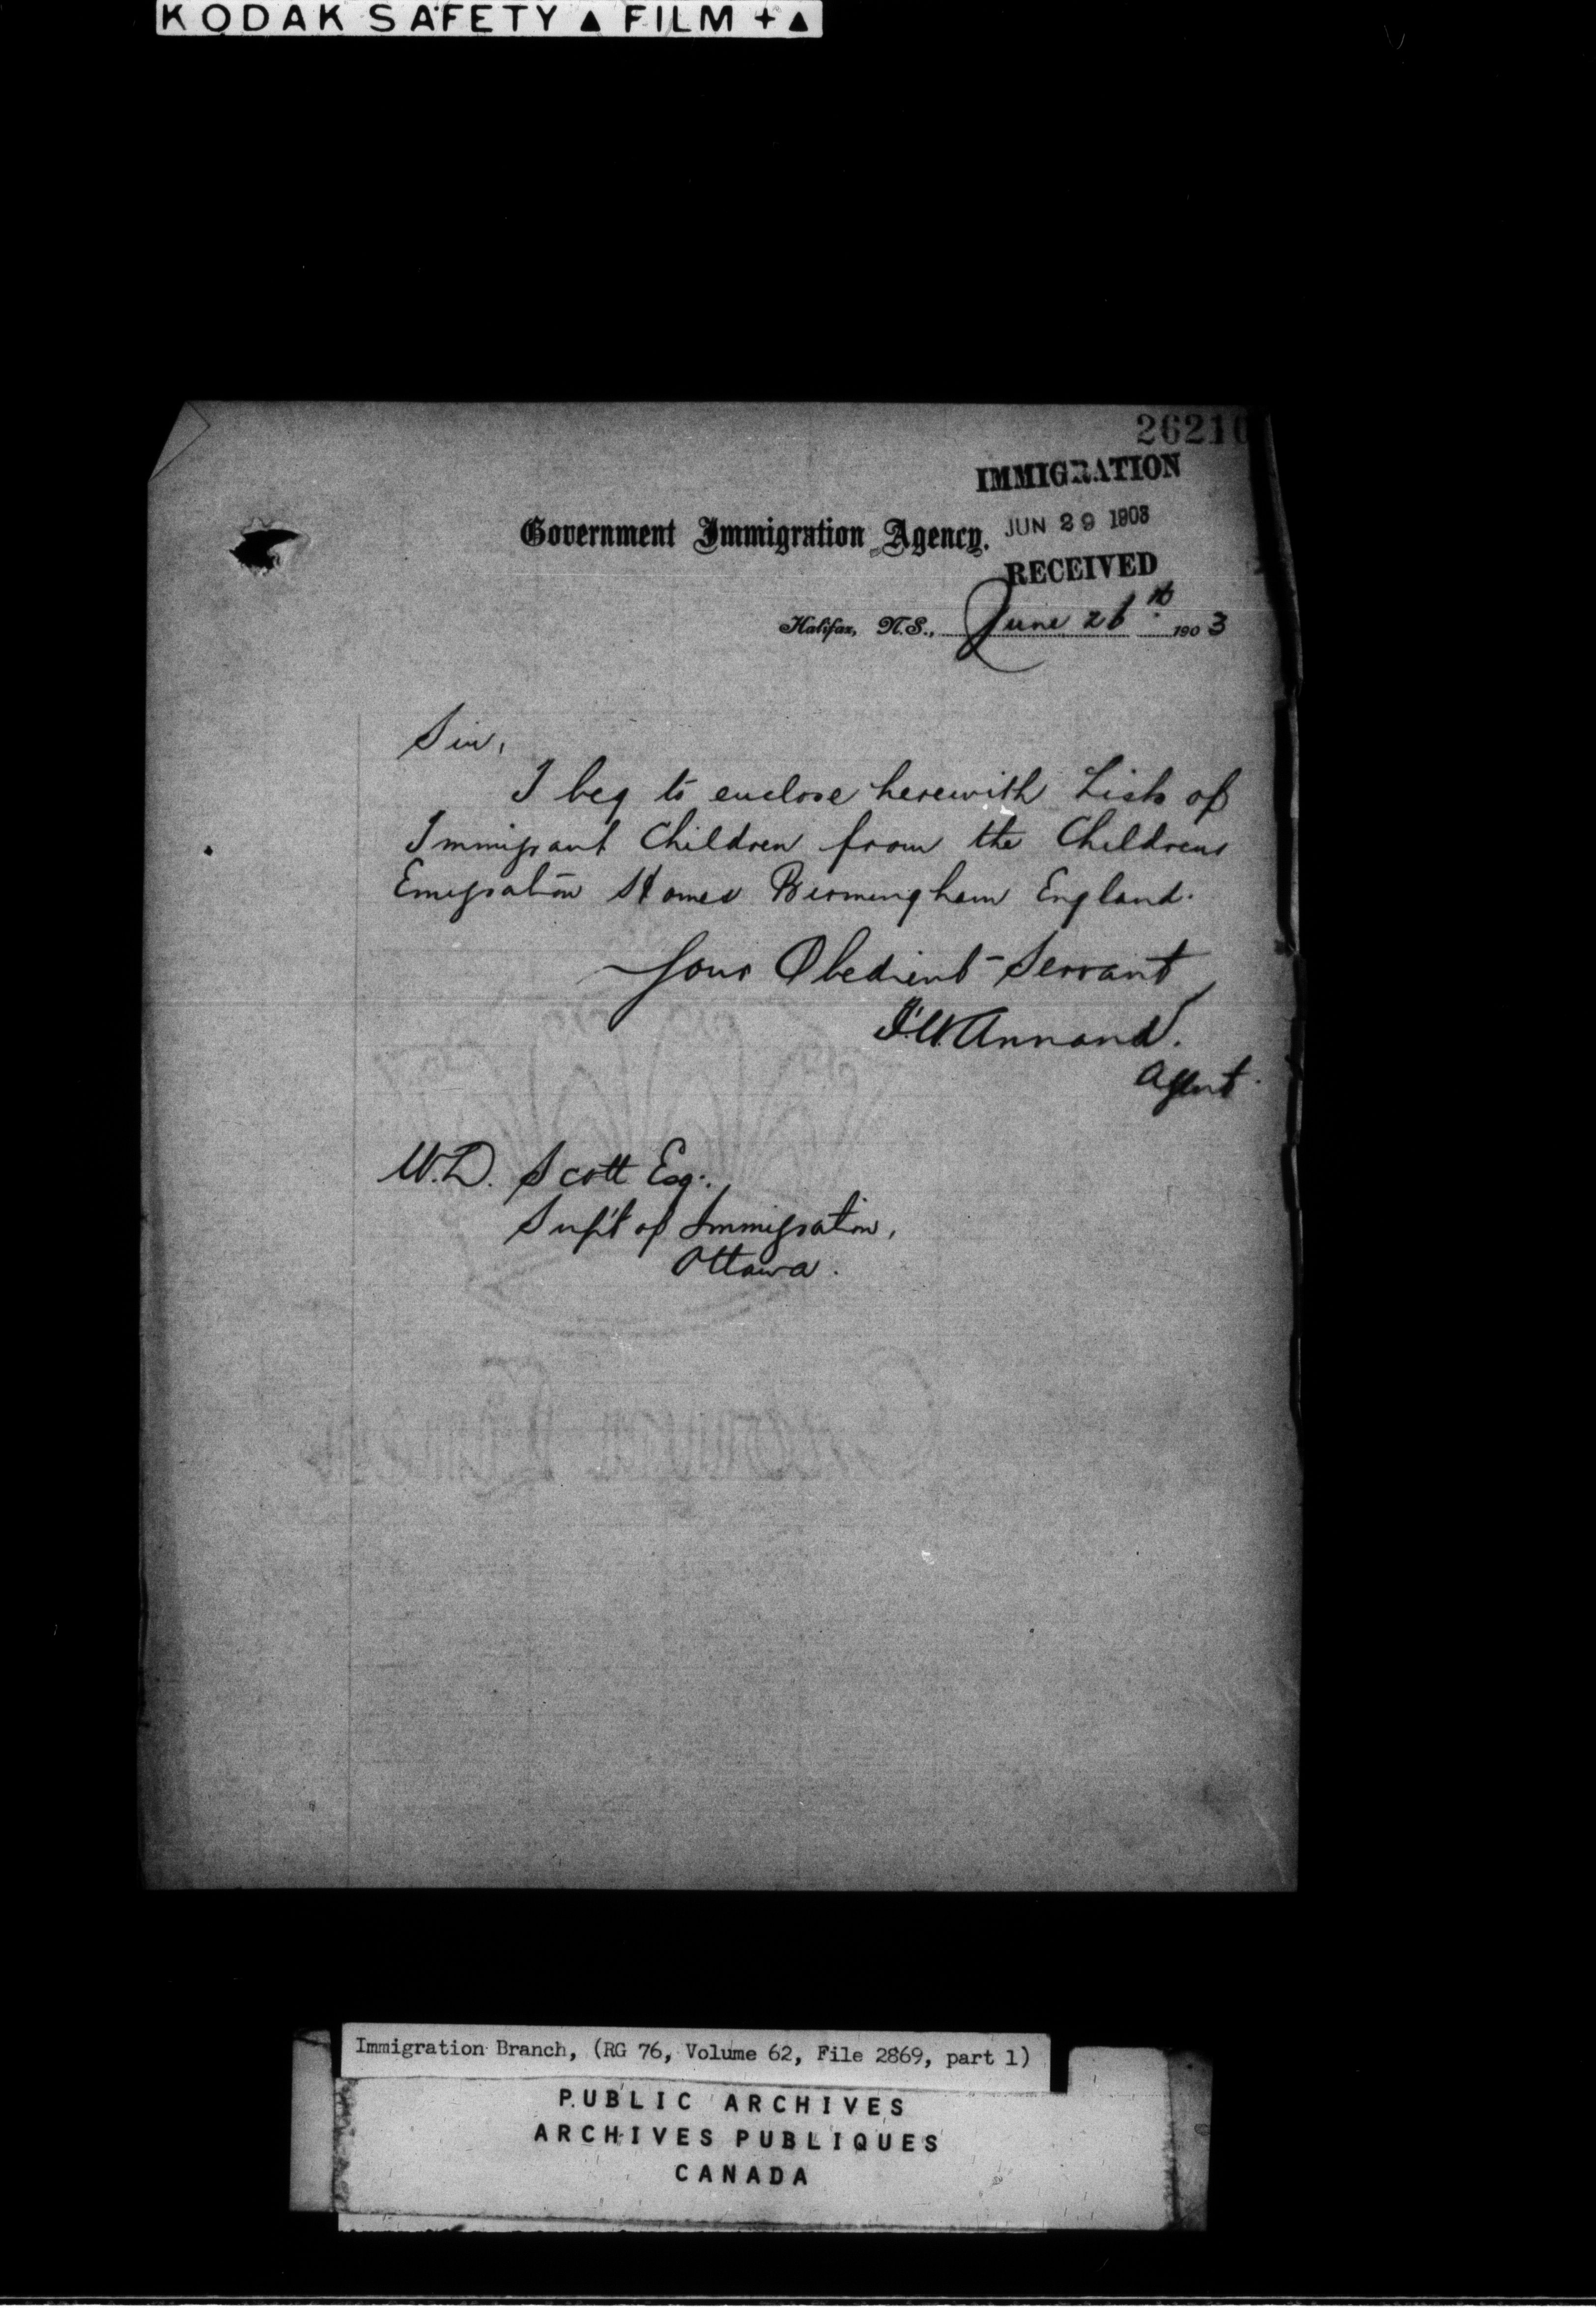 KODAK SAFETY ▲ FILM + ▲
26210
IMMIGRATION
JUN 29 1903
RECEIVED
Government Immigration Agency.
Halifax, N.S., June 26th 1903
Sir,
I beg to enclose herewith Lists of
Immigrant Children from the Childrens
Emigration Homes Birmingham England.
Your Obedient Servant,
F.W. Annand.
Agent.
W.D. Scott Esq.,
Sup't of Immigration,
Ottawa.
Immigration Branch, (RG 76, Volume 62, File 2869, part 1)
PUBLIC ARCHIVES
ARCHIVES PUBLIQUES
CANADA